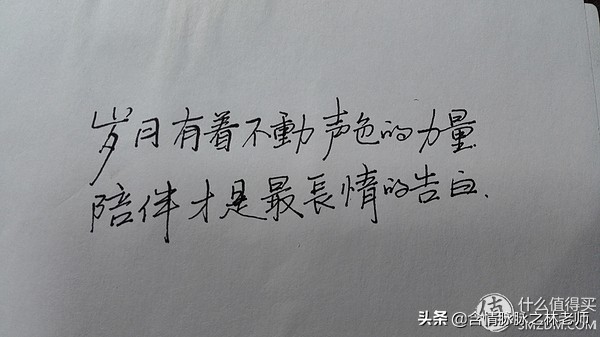 岁月有着不動声色的力量
陪伴才是最長情的告白.
值 什么值得买
SMZDM.COM
头条 @含情脉脉之林老师